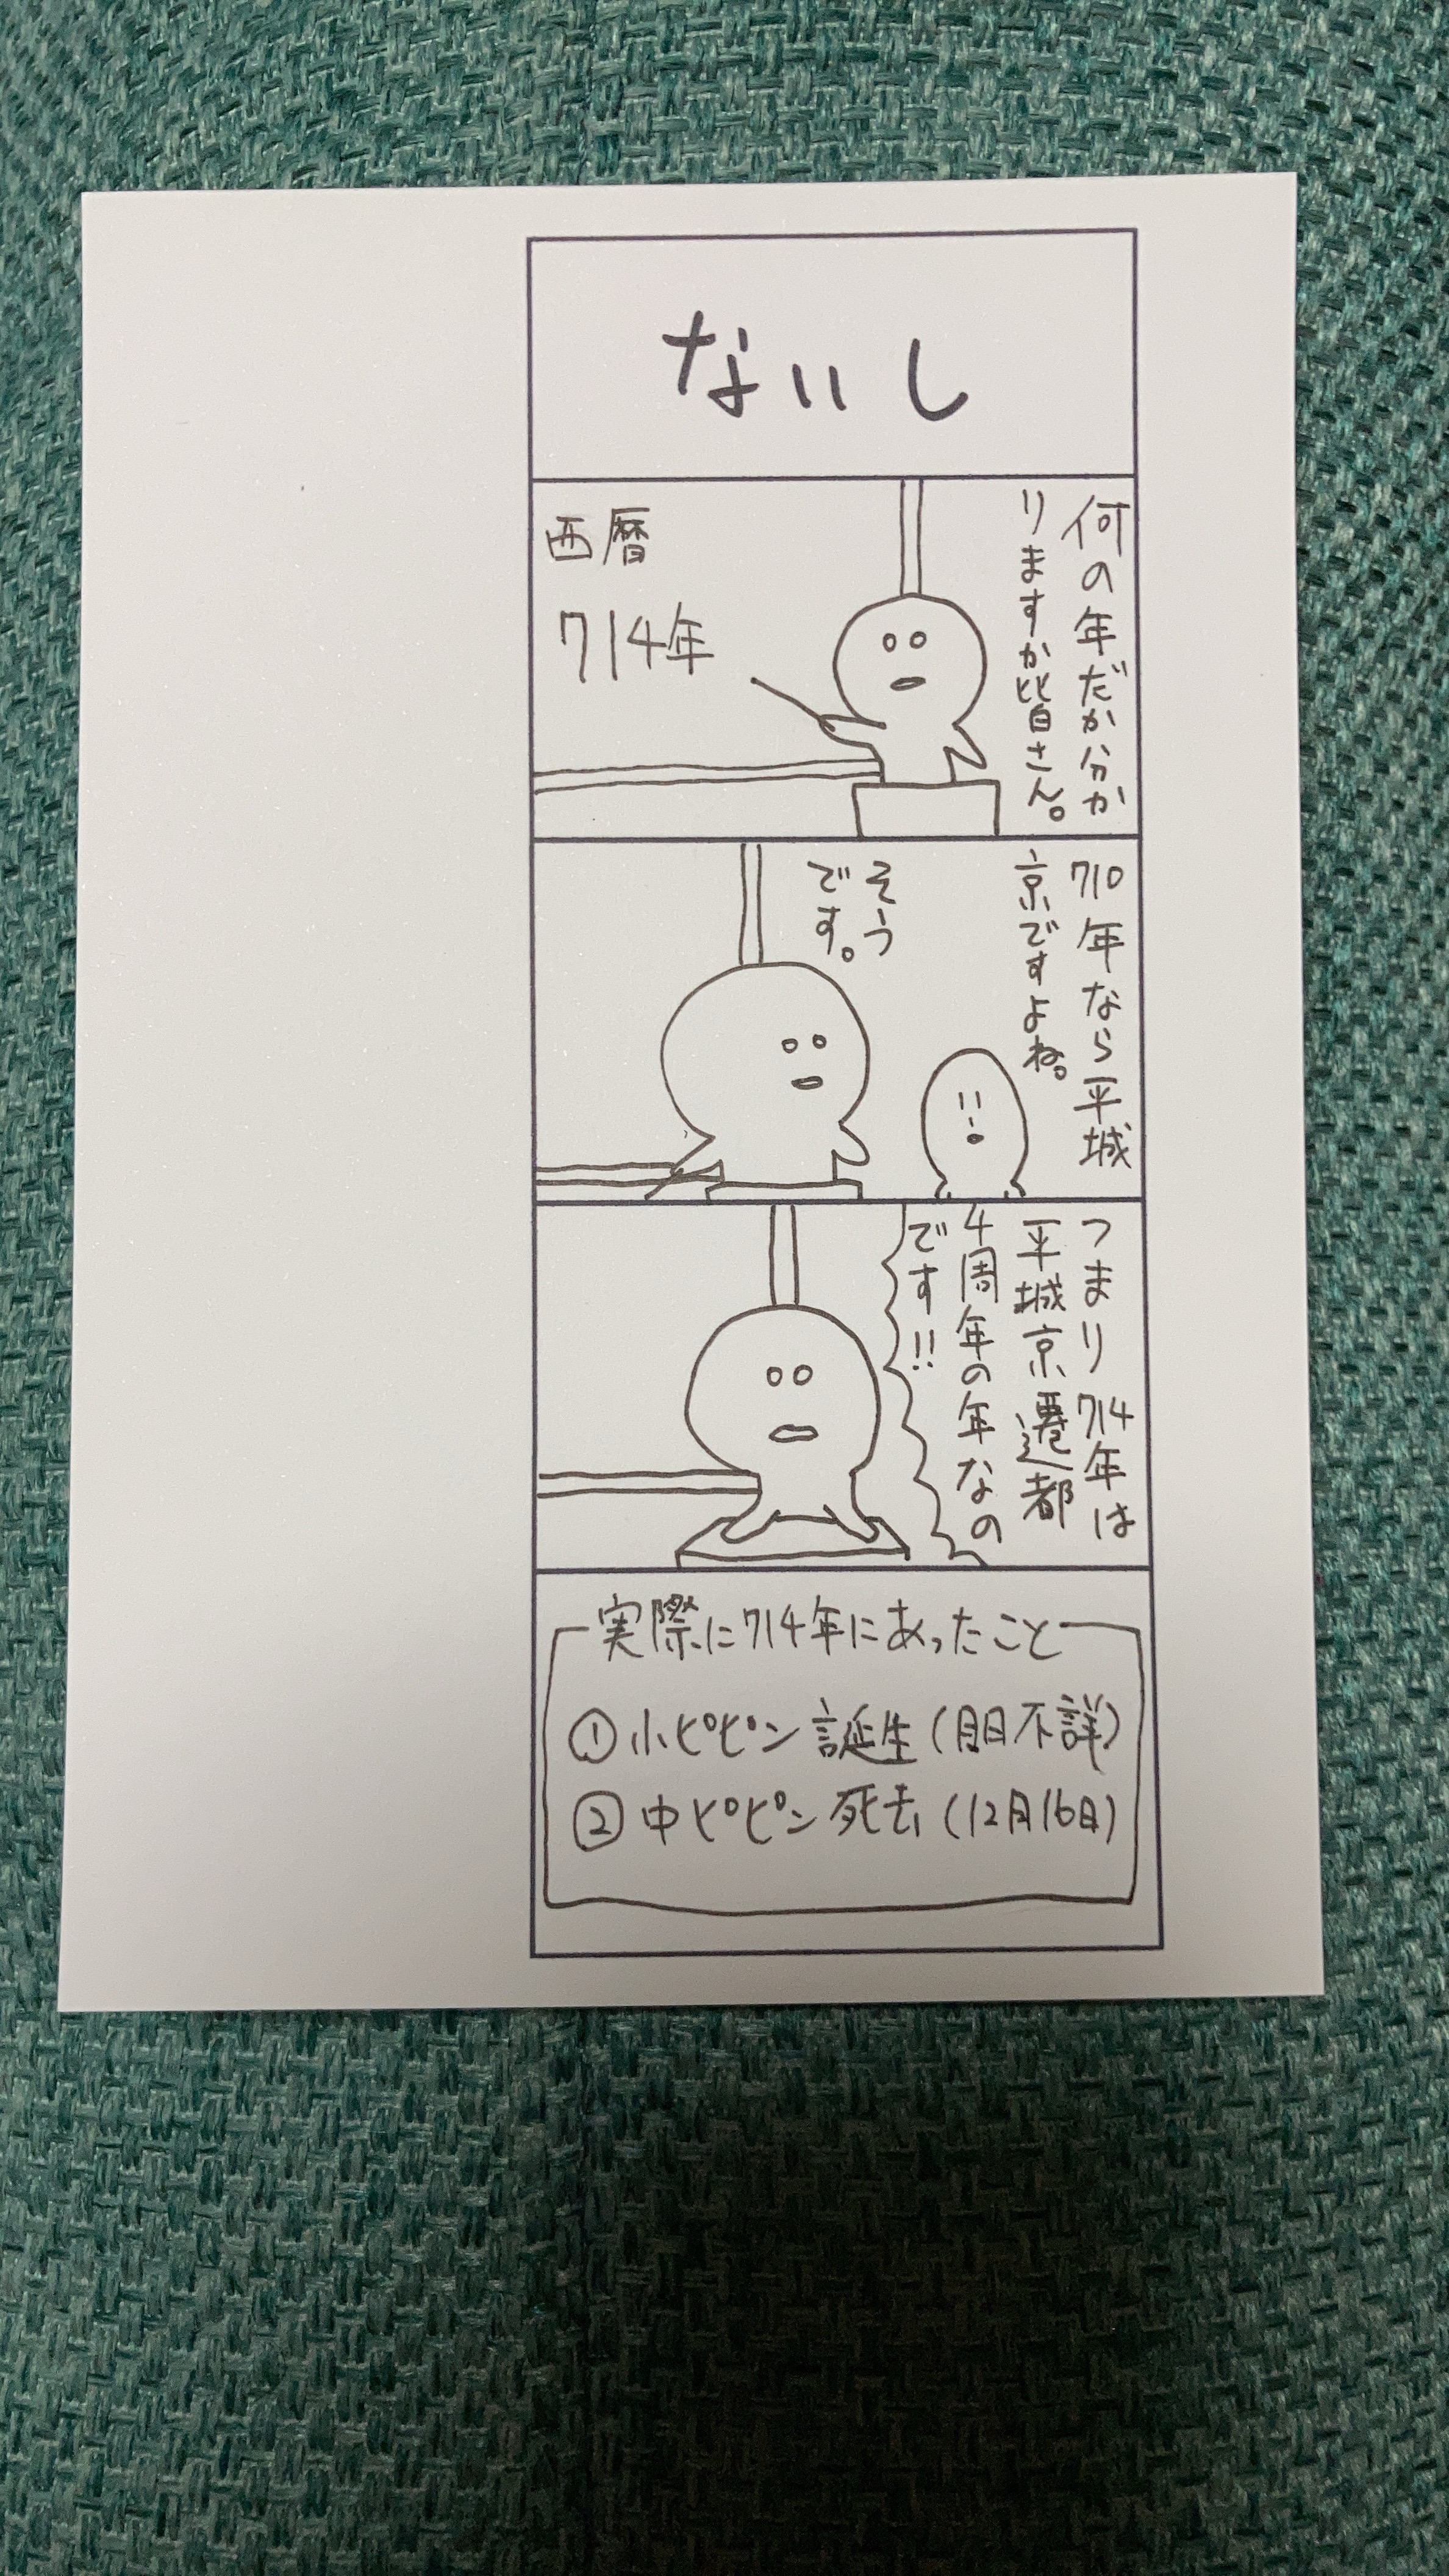 ないし
何の年だか分か
りますか皆さん。
西暦
714年
710年なら平城
京ですよね。
そう
です。
つまり714年は
平城京遷都
4周年の年なの
です!!
実際に714年にあったこと
①小ピピン誕生(月日不詳)
②中ピピン死去(12月16日)